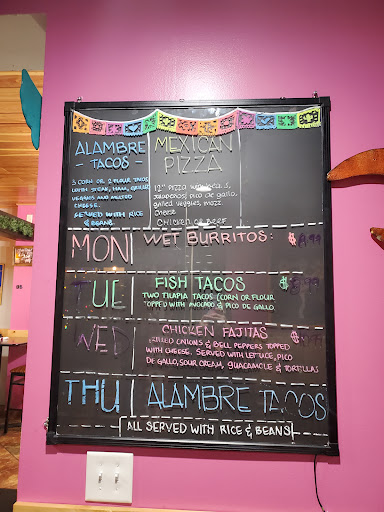 ALAMBRE
- TACOS -
3 CORN OR 2 FLOUR TACOS
WITH STEAK, HAM, GRILLED
VEGGIES AND MELTED
CHEESE.
SERVED WITH RICE
& BEANS.
MEXICAN
PIZZA
12" PIZZA
JALAPEÑOS, PICO DE GALLO,
GRILLED VEGGIES, MOZZ
CHEESE
CHICKEN OR BEEF
MON WET BURRITOS: $ 9.99
TUE FISH TACOS $ 9.99
TWO TILAPIA TACOS (CORN OR FLOUR
TOPPED WITH AVOCADO & PICO DE GALLO.
SERVED WITH RICE
WED CHICKEN FAJITAS
GRILLED ONIONS & BELL PEPPERS TOPPED
WITH CHEESE. SERVED WITH LETTUCE, PICO
DE GALLO, SOUR CREAM, GUACAMOLE & TORTILLAS
THU ALAMBRE TACOS
ALL SERVED WITH RICE & BEANS